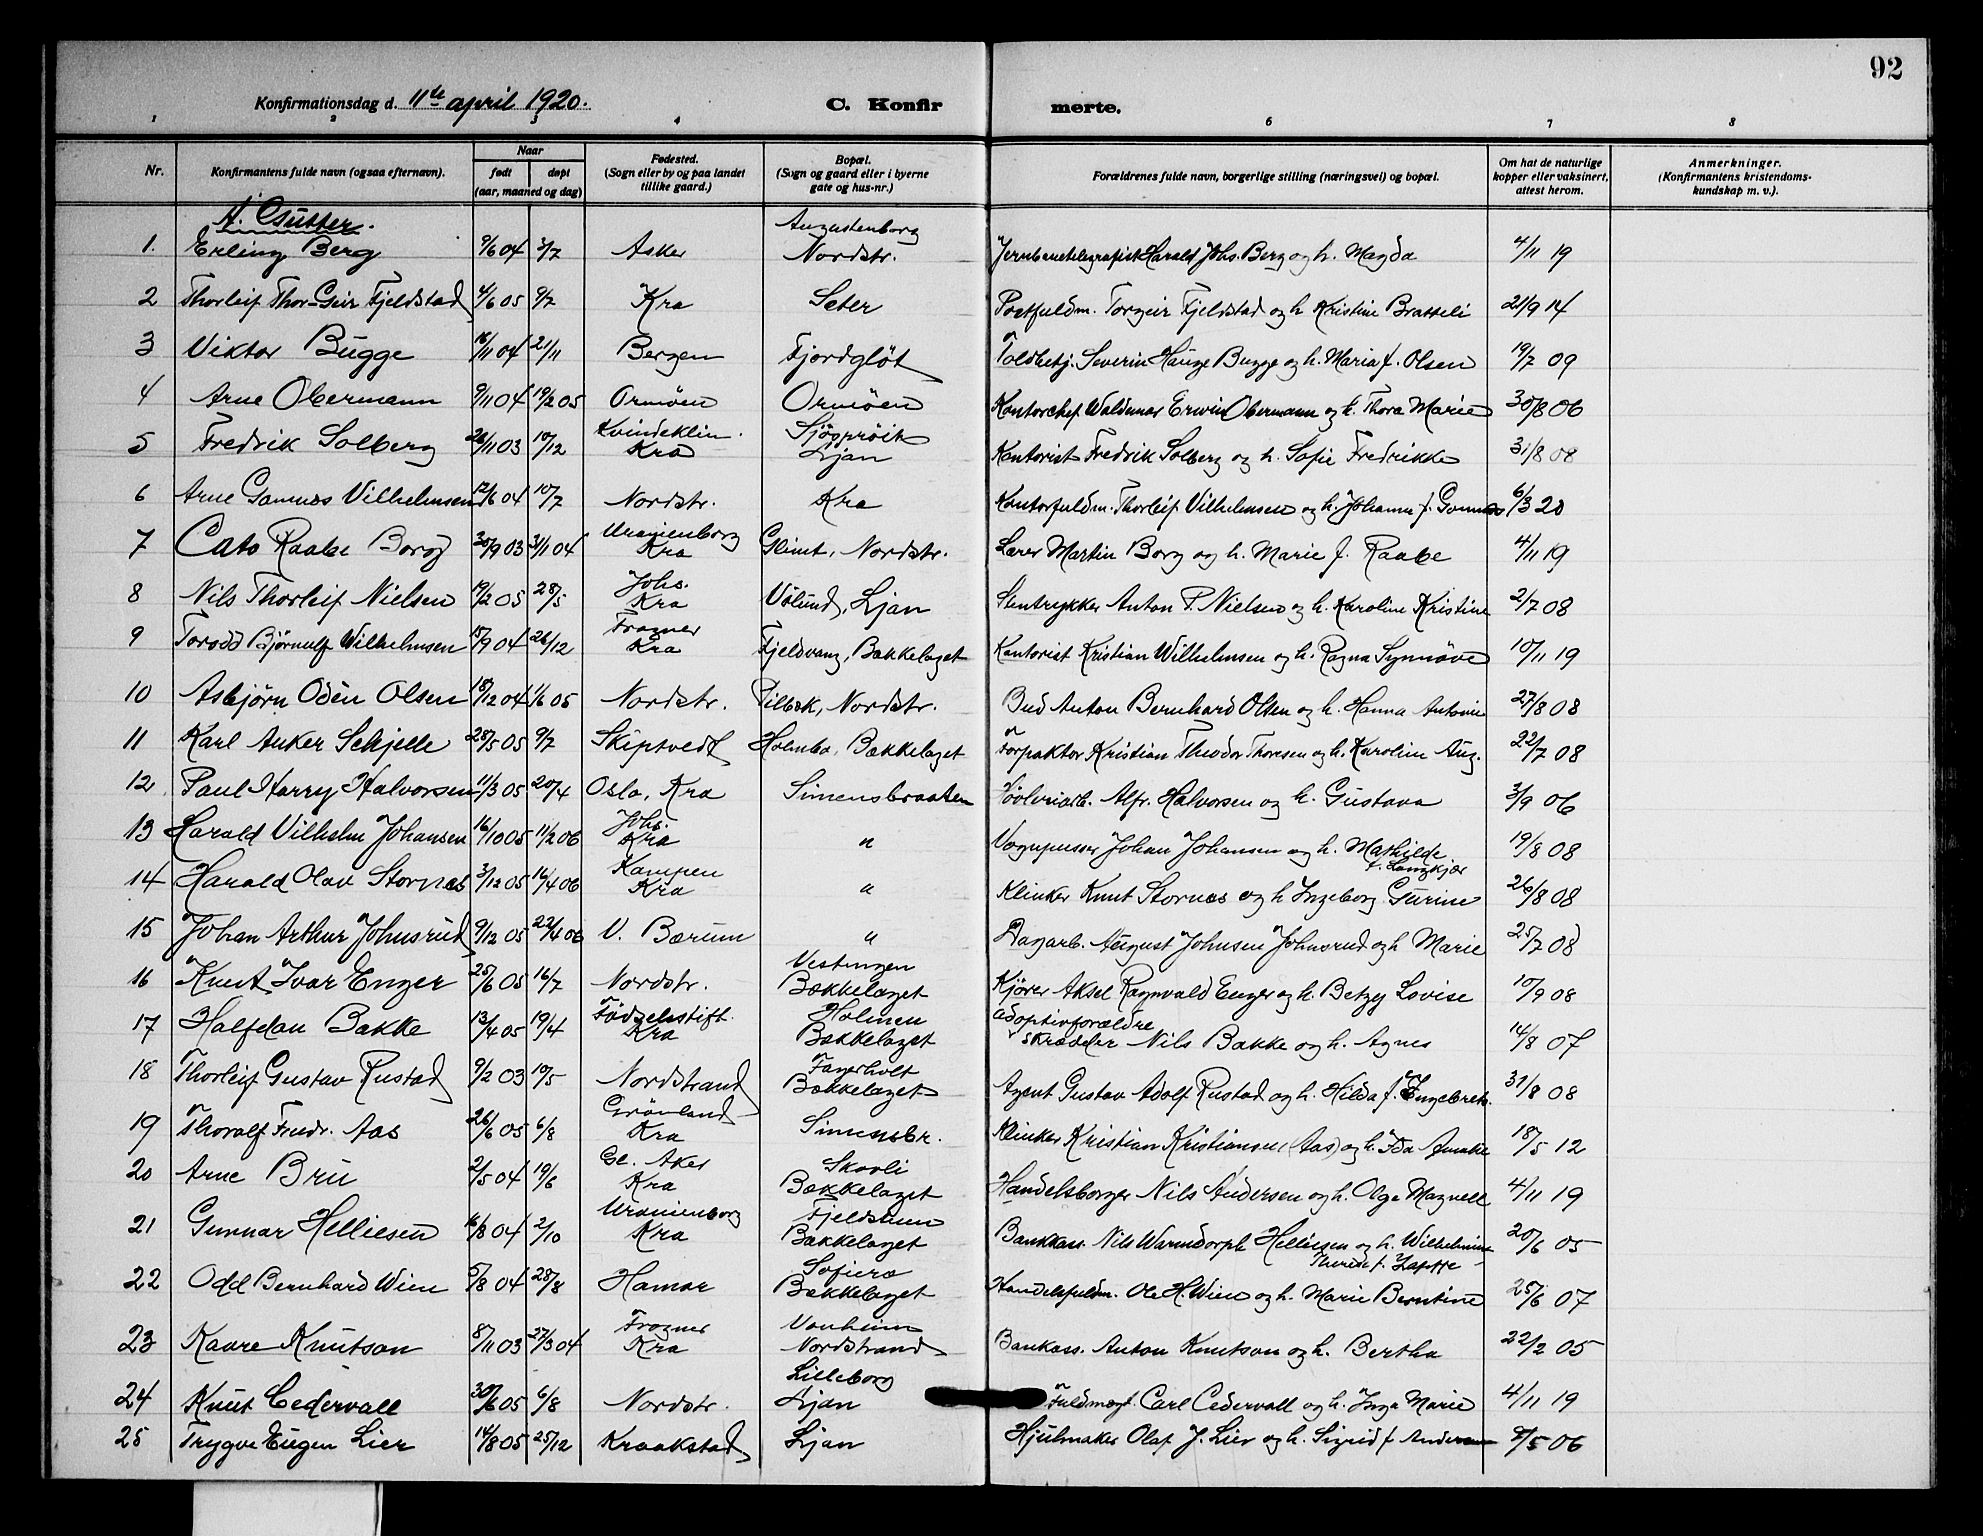 92
Konfirmationsdag d. 11te april 1920.
C. Konfir merte.
1 2 3 4 6 7 8
Nr.
Konfirmantens fulde navn (ogsaa efternavn).
Naar
født
døpt
(aar, maaned og dag)
Fødested.
(Sogn eller by og paa landet
tillike gaard.)
Bopæl.
(Sogn og gaard eller i byerne
gate og hus-nr.)
Forældrenes fulde navn, borgerlige stilling (næringsvei) og bopæl.
Om hat de naturlige
kopper eller vaksinert,
attest herom.
Anmerkninger.
(Konfirmantens kristendoms-
kundskap m. v.).
A. Gutter.
Augustenborg
1. Erling Berg 9/6 04 3/7 Asker Nordstr. Jernbanetelegrafist Harald Johs. Berg og h. Magda 4/11 19
2 Thorleif Thor-Geir Fjeldstad 4/6 05 9/7 Kra Sæter Postfuldm. Torgeir Fjeldstad og h Kristine Bratteli 21/9 14
3 Viktor Bugge 16/11 04 21/11 Bergen Fjordgløt Toldbetj. Severin Hauge Bugge og h. Maria f. Olsen 19/7 09
4 Arne Obermann 9/11 04 19/2 05 Ormøen Ormøen Kontorchef Waldemar Erwin Obermann og h. Thora Marie 30/8 06
Kvindeklin.
5 Fredrik Solberg 26/11 03 10/12 Kra Ljan Kontorist Fredrik Solberg og h. Sofie Fredrikke 31/8 08
6 Arne Gomnæs Vilhelmsen 12/6 04 10/7 Nordstr. Kra Kontorfuldm. Thorleif Vilhelmsen og h. Johanne f. Gomnæs 6/3 20
Uranienborg
7 Cato Raabe Borg 30/9 03 31/1 04 Kra Glimt, Nordstr. Lærer Martin Borg og h. Marie f. Raabe 4/11 19
Johs.
8 Nils Thorleif Nielsen 19/2 05 28/5 Kra Vølund, Ljan Stentrykker Anton P. Nielsen og h. Karoline Kristine 2/7 08
Frogner
9 Torodd Bjørnulf Wilhelmsen 15/9 04 26/12 Kra Fjeldvang, Bækkelaget Kontorist Kristian Wilhelmsen og h. Ragna Synnøve 10/11 19
10 Asbjørn Odin Olsen 18/12 04 1/6 05 Nordstr. Pilbæk, Nordstr. Bud Anton Bernhard Olsen og h. Hanna Antonie 27/8 08
11 Karl Anker Schjelle 28/5 05 9/7 Skiptvedt Holmbo, Bækkelaget Forpaktor Kristian Theodor Thoresen og h. Karoline Aug. 22/7 08
12 Paul Harry Halvorsen 11/3 05 20/4 Oslo, Kra Simensbraaten Høvleriarb. Alfr. Halvorsen og h. Gustava 3/9 06
Johs.
13 Harald Vilhelm Johansen 16/10 05 11/2 06 Kra " Vognpusser Johan Johansen og h. Mathilde 19/8 08
f. Langkjær
Kampen
14 Harald Olav Stornæs 3/12 05 16/4 06 Kra " Klinker Knut Stornæs og h Ingeborg Gurine 26/8 08
15 Johan Arthur Johnsrud 9/12 05 22/4 06 V. Bærum " Dagarb. August Johnsen Johnsrud og h Marie 25/7 08
Vestengen
16 Knut Ivar Enger 25/6 05 16/7 Nordstr. Bækkelaget Kjører Aksel Ragnvald Enger og h. Betzy Lovise 10/9 08
Fødselsstift. Holmen Adoptivforældre
17 Halfdan Bakke 13/4 05 19/4 Kra Bækkelaget skrædder Nils Bakke og h. Agnes 14/8 07
Fagerholt
18 Thorleif Gustav Rustad 9/2 03 10/5 Nordstrand Bækkelaget Agent Gustav Adolf Rustad og h. Hilda f. Engebrets. 31/8 08
Grønland
19 Thoralf Fredr. Aas 26/6 05 6/8 Kra Simensbr. Klinker Kristian Kristiansen (Aas) og h. Ida Amalie 18/5 12
Gl. Aker Skovli
20 Arne Bru 2/5 04 19/6 Kra Bækkelaget Handelsborger Nils Andersen og h. Olga Magnell 4/11 19
Uranienborg Fjeldheim
21 Gunnar Helliesen 16/8 04 2/10 Kra Bækkelaget Bankkass. Nils Warendorph Helliesen og h. Wilhelmine 20/6 05
Therese f. Zapffe
Sofiero
22 Odd Bernhard Wien 5/8 04 28/8 Hamar Bækkelaget Handelsfuldm. Ole H. Wien og h. Marie Berntine 25/6 07
Frogner Vonheim
23 Kaare Knutson 8/11 03 27/3 04 Kra Nordstrand Bankass. Anton Knutson og h. Bertha 22/2 05
Lilleborg
24 Knut Cedervall 30/6 05 6/8 Nordstr. Ljan Fuldmægt. Carl Cedervall og h. Inga Marie 4/11 19
25 Trygve Eugen Lier 14/8 05 25/12 Kraakstad Ljan Hjulmaker Olaf J. Lier og h. Sigrid f. Andersen 8/5 06